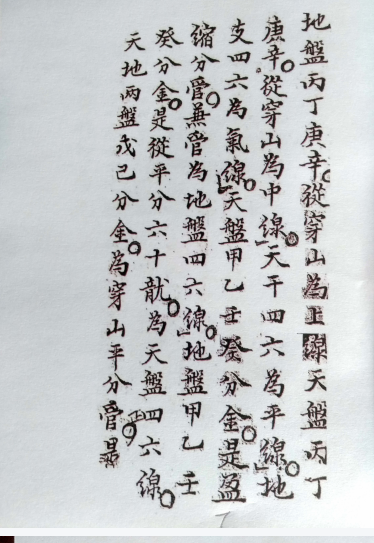 地盤丙丁庚辛從穿山為正線天盤丙丁
庚辛。從穿山為中線。天干四六為平線。地
支四六為氣線。天盤甲乙壬癸分金是盈
缩分管。兼管為地盤四六線。地盤甲乙壬
癸分金。是從平分六十龍。為天盤四六線。
天地兩盤戊己分金。為穿山平分管。是